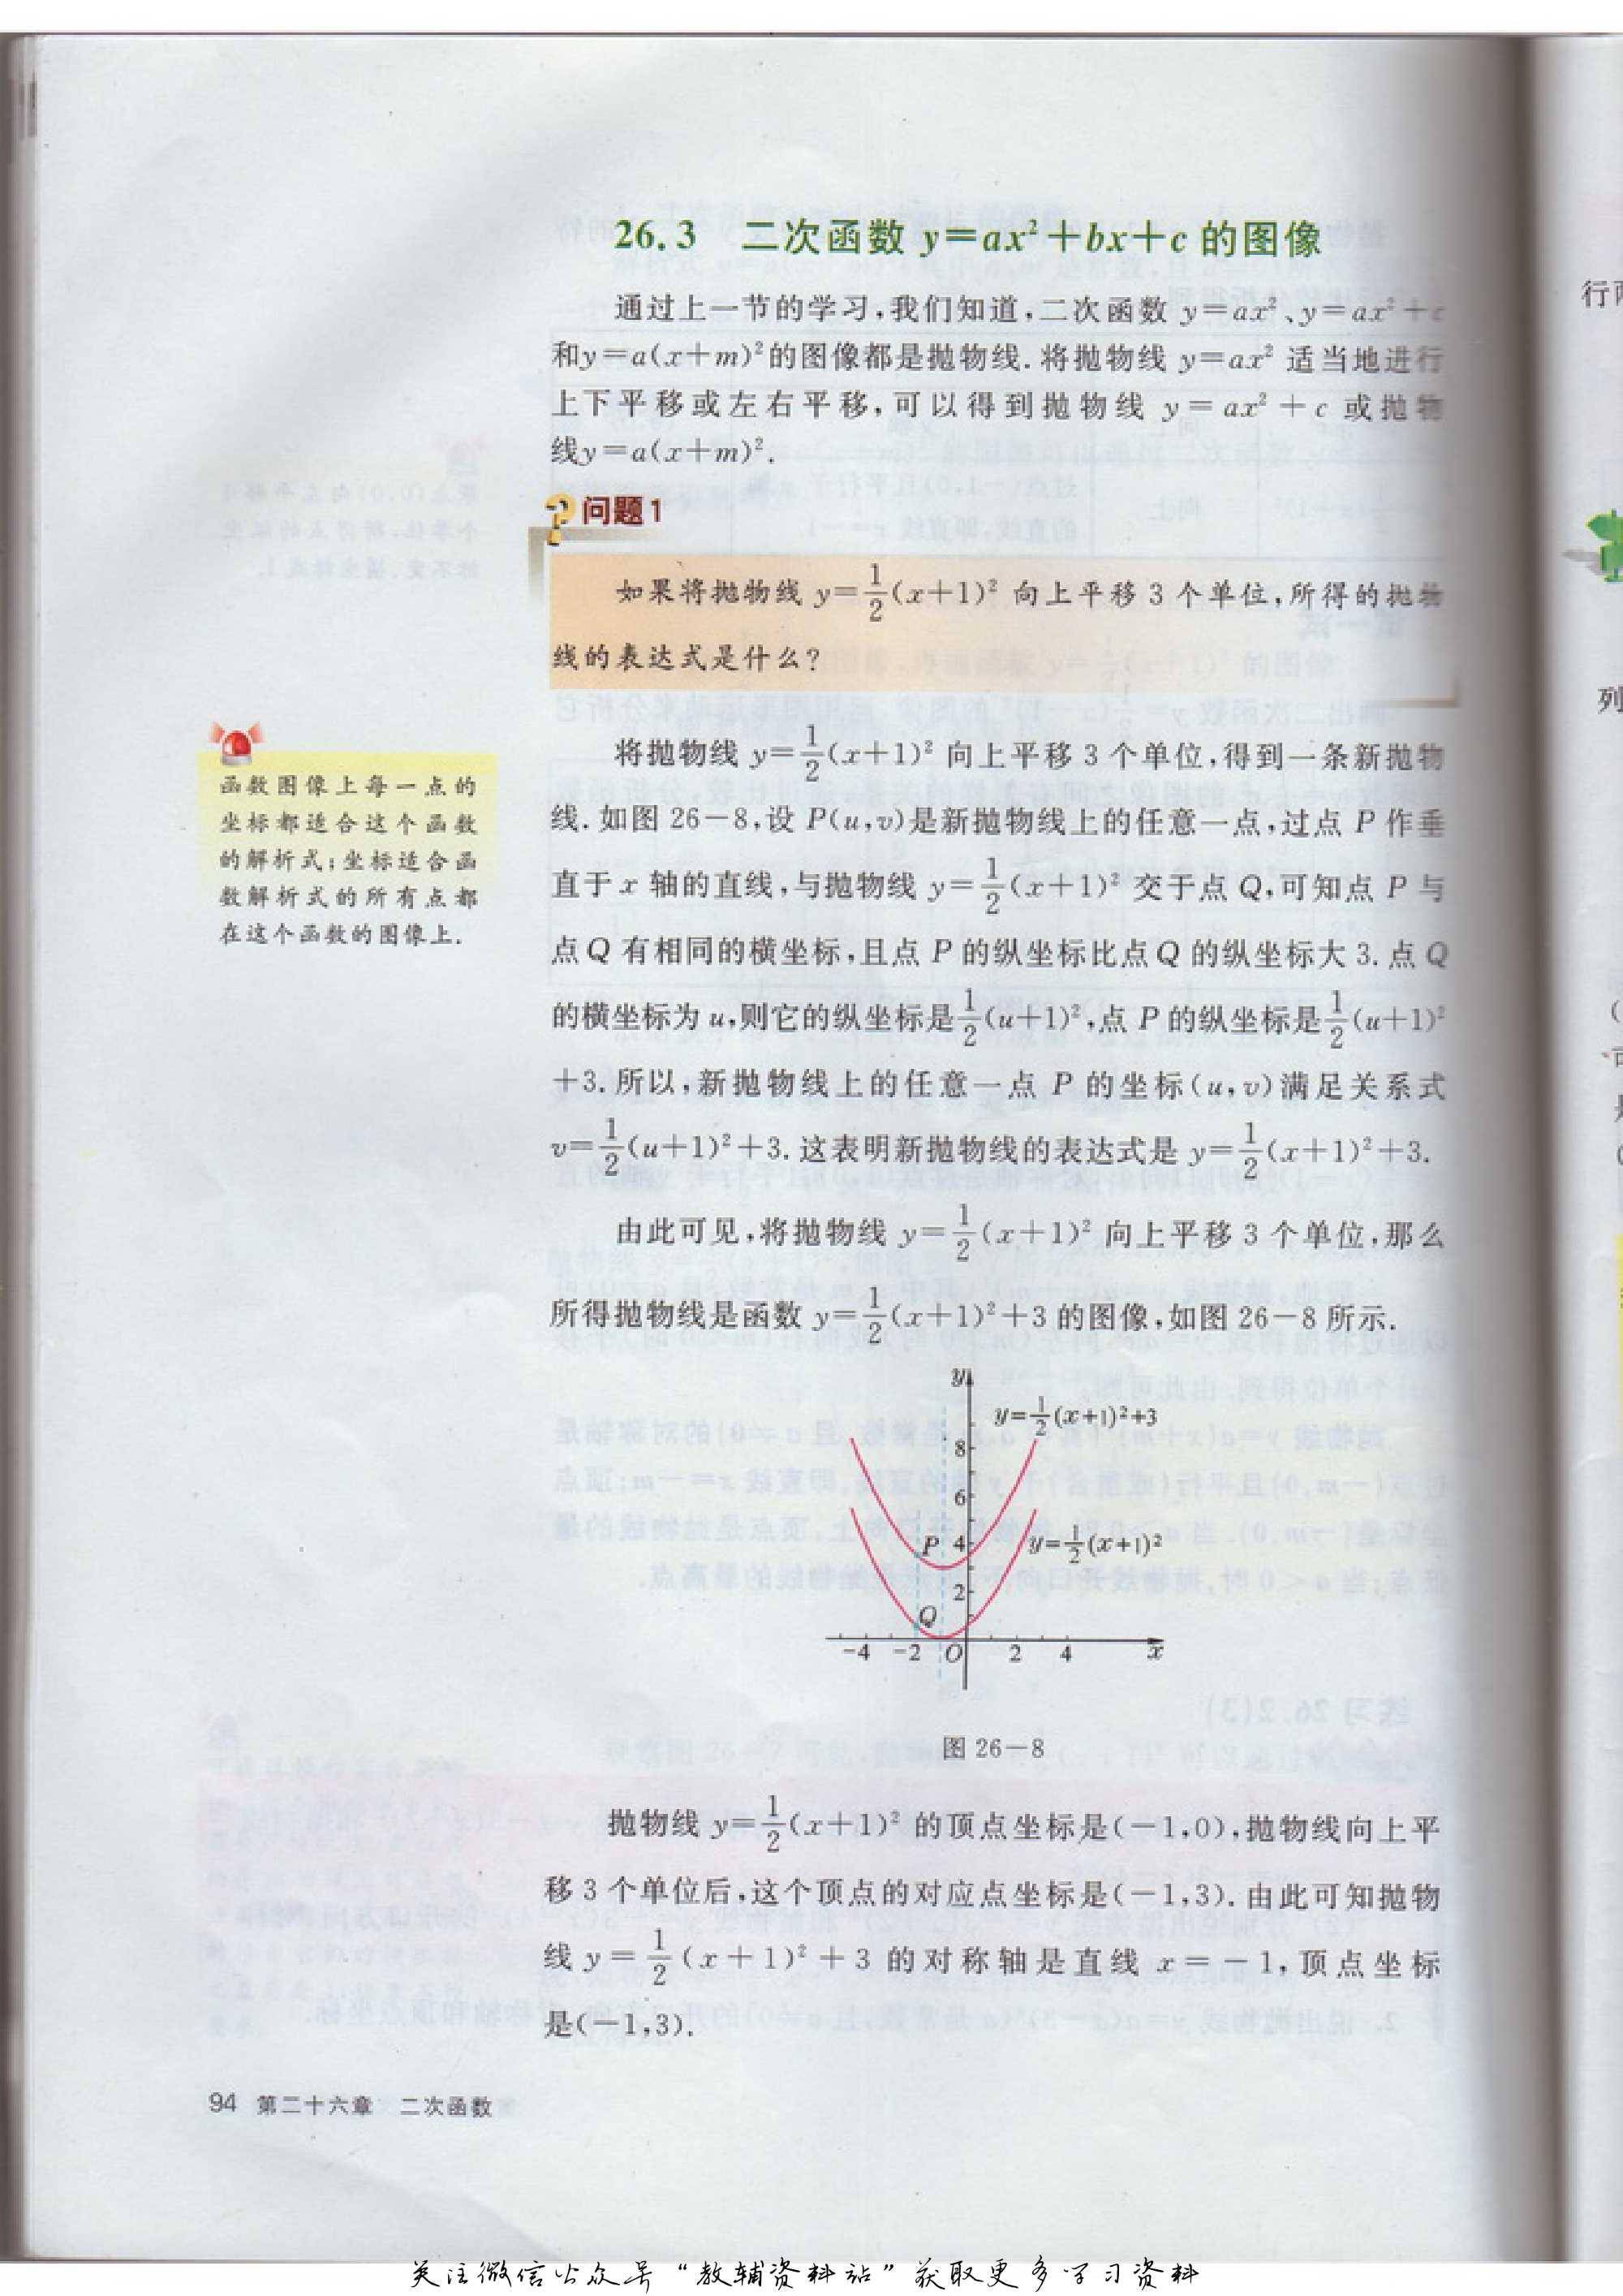 26.3 二次函数 y=ax²+bx+c 的图像
通过上一节的学习,我们知道,二次函数 y=ax²、y=ax²+c
和y=a(x+m)²的图像都是抛物线.将抛物线 y=ax² 适当地进行
上下平移或左右平移,可以得到抛物线 y=ax²+c 或抛物
线y=a(x+m)².
问题1
如果将抛物线 y=1/2(x+1)² 向上平移 3 个单位,所得的抛物
线的表达式是什么?
将抛物线 y=1/2(x+1)² 向上平移 3 个单位,得到一条新抛物
线.如图 26-8,设 P(u,v)是新抛物线上的任意一点,过点 P 作垂
直于 x 轴的直线,与抛物线 y=1/2(x+1)² 交于点 Q,可知点 P 与
点 Q 有相同的横坐标,且点 P 的纵坐标比点 Q 的纵坐标大 3.点 Q
的横坐标为 u,则它的纵坐标是1/2(u+1)²,点 P 的纵坐标是1/2(u+1)²
+3.所以,新抛物线上的任意一点 P 的坐标(u,v)满足关系式
v=1/2(u+1)²+3.这表明新抛物线的表达式是 y=1/2(x+1)²+3.
由此可见,将抛物线 y=1/2(x+1)² 向上平移 3 个单位,那么
所得抛物线是函数 y=1/2(x+1)²+3 的图像,如图 26-8 所示.
函数图像上每一点的
坐标都适合这个函数
的解析式;坐标适合函
数解析式的所有点都
在这个函数的图像上.
y
y=1/2(x+1)²+3
8
6
P 4
y=1/2(x+1)²
2
Q
-4 -2 O 2 4 x
图 26-8
抛物线 y=1/2(x+1)² 的顶点坐标是(-1,0),抛物线向上平
移 3 个单位后,这个顶点的对应点坐标是(-1,3).由此可知抛物
线 y=1/2(x+1)²+3 的对称轴是直线 x=-1,顶点坐标
是(-1,3).
94 第二十六章 二次函数
行
列
关注微信公众号“教辅资料站”获取更多学习资料